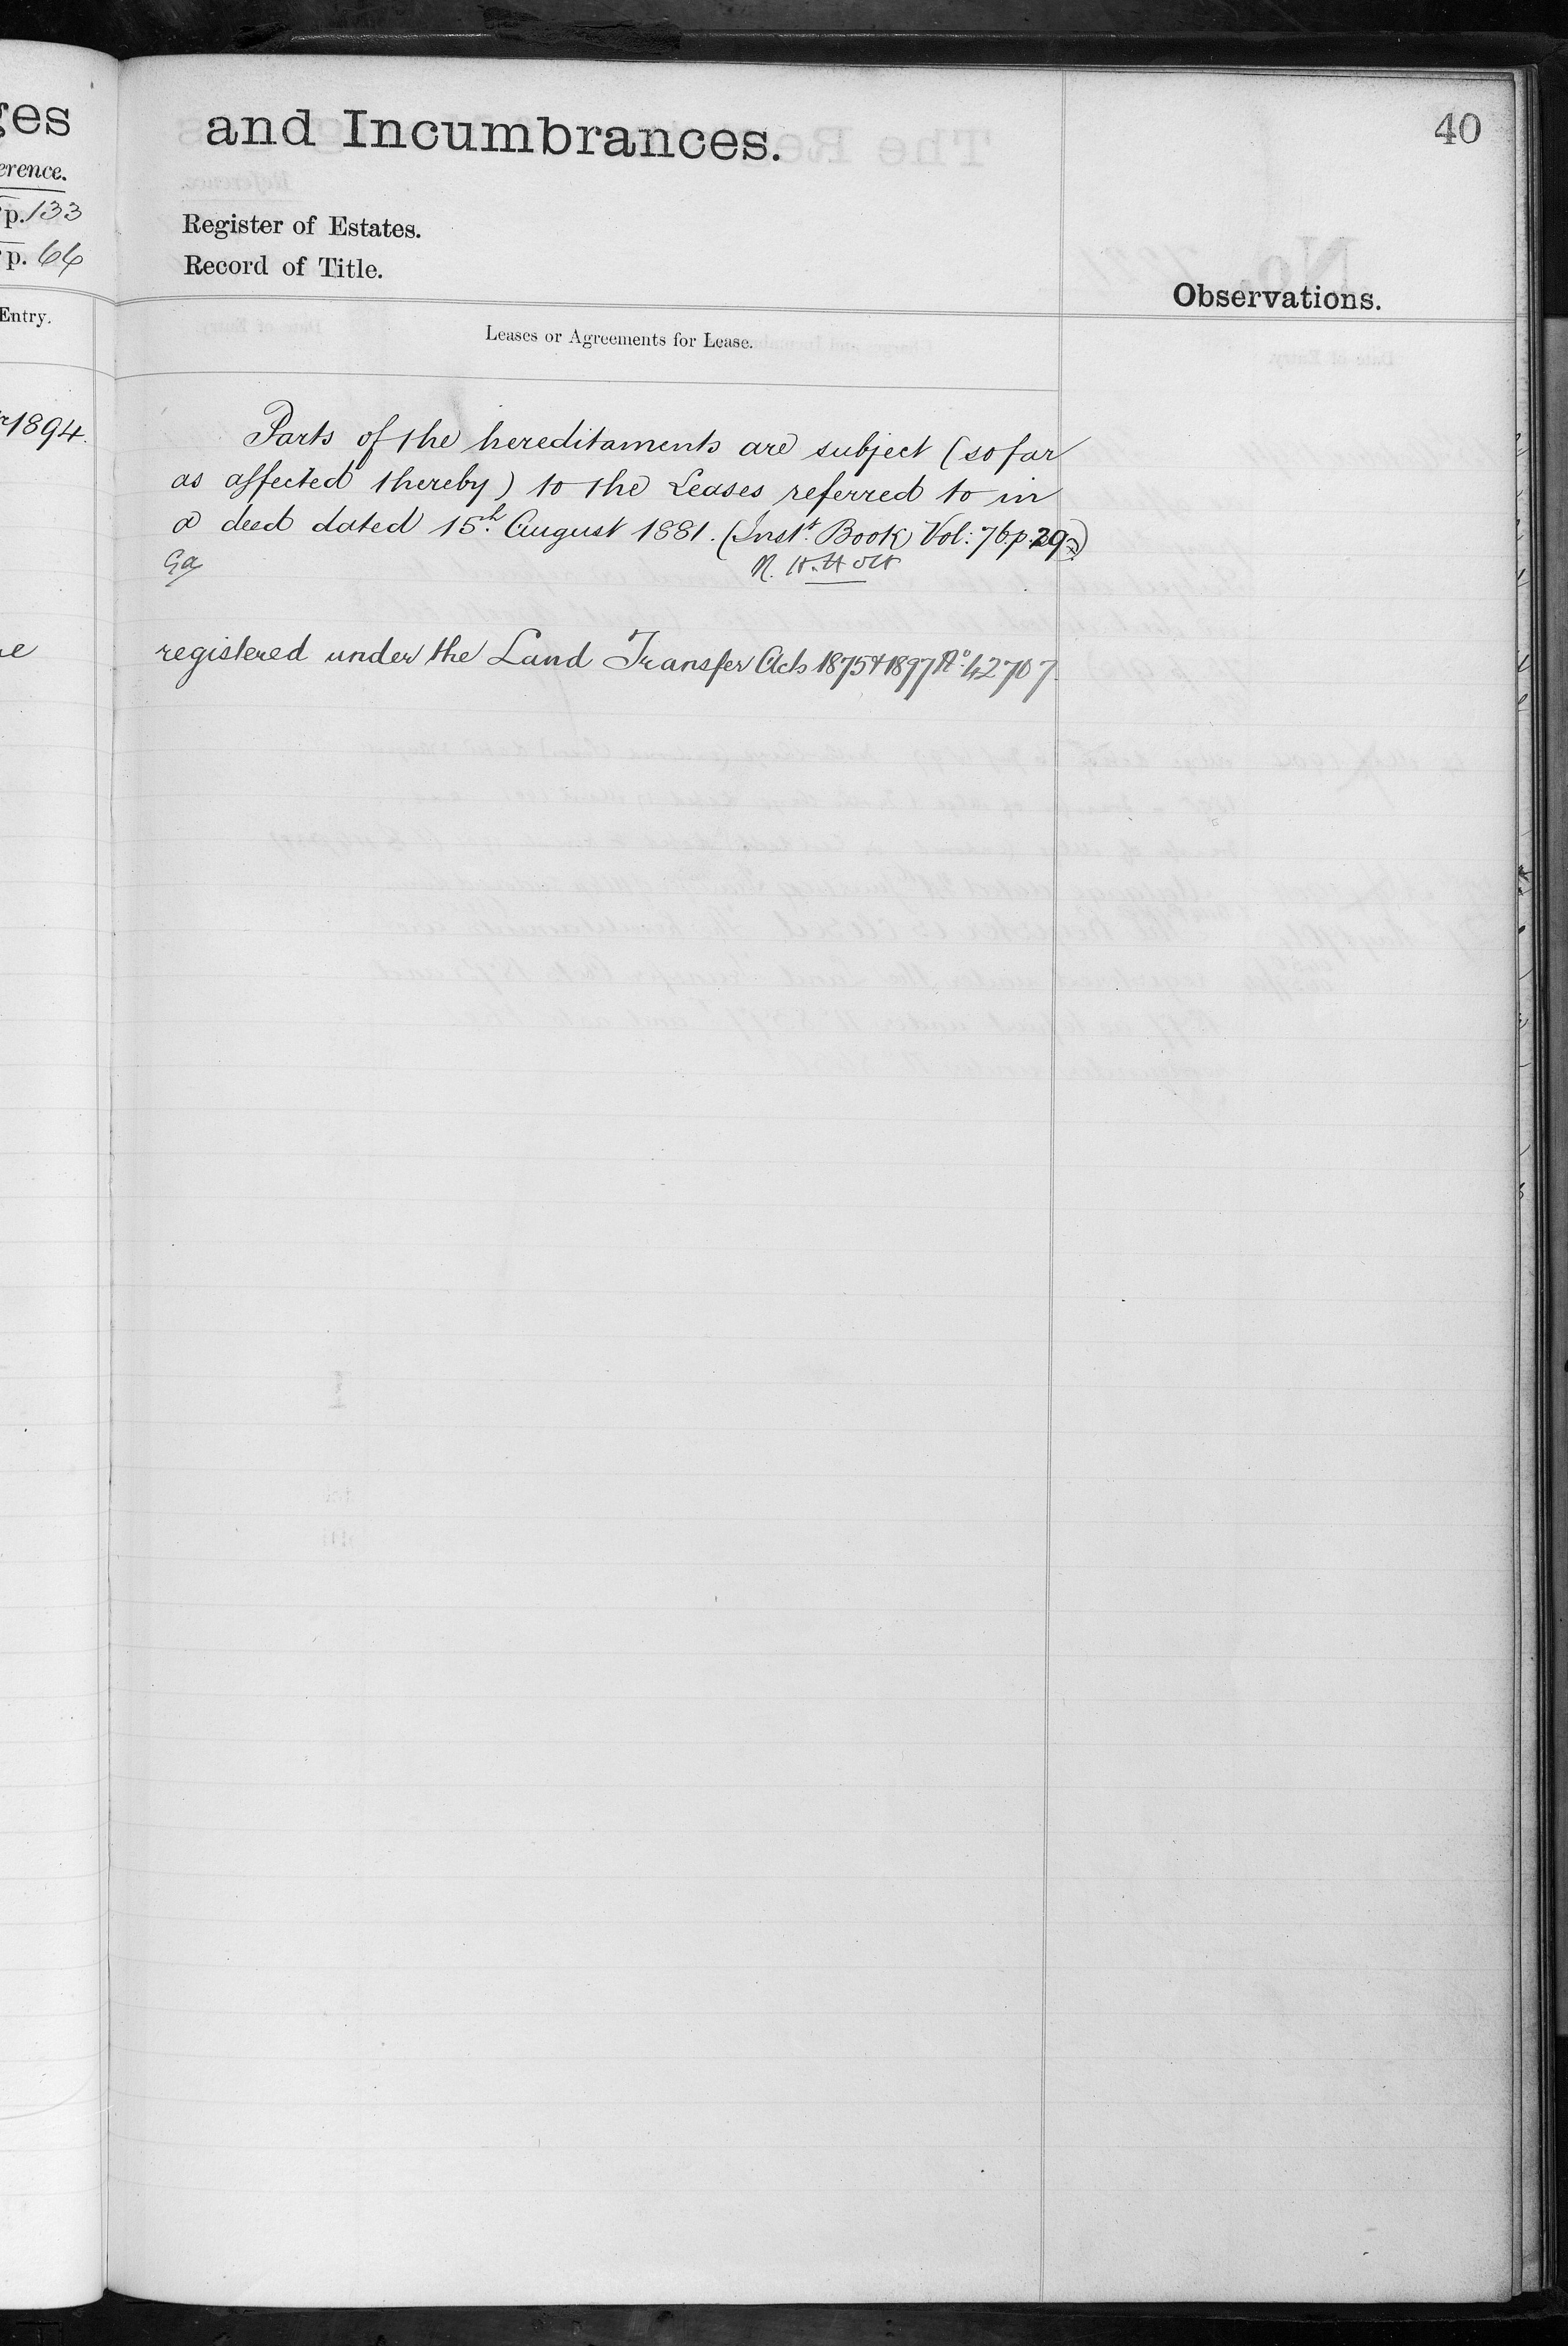 and Incumbrances.
40
Register of Estates.
Record of Title.
Observations.
Leases or Agreements for Lease.
Parts of the hereditaments are subject (so far
as affected thereby) to the Leases referred to in
a deed dated 15th August 1881. (Inst. Book Vol: 76 p. 29
registered under the Land Transfer Acts 1875 & 1897 No. 42707.
ges
erence.
p. 133
p. 64
Entry.
1894.